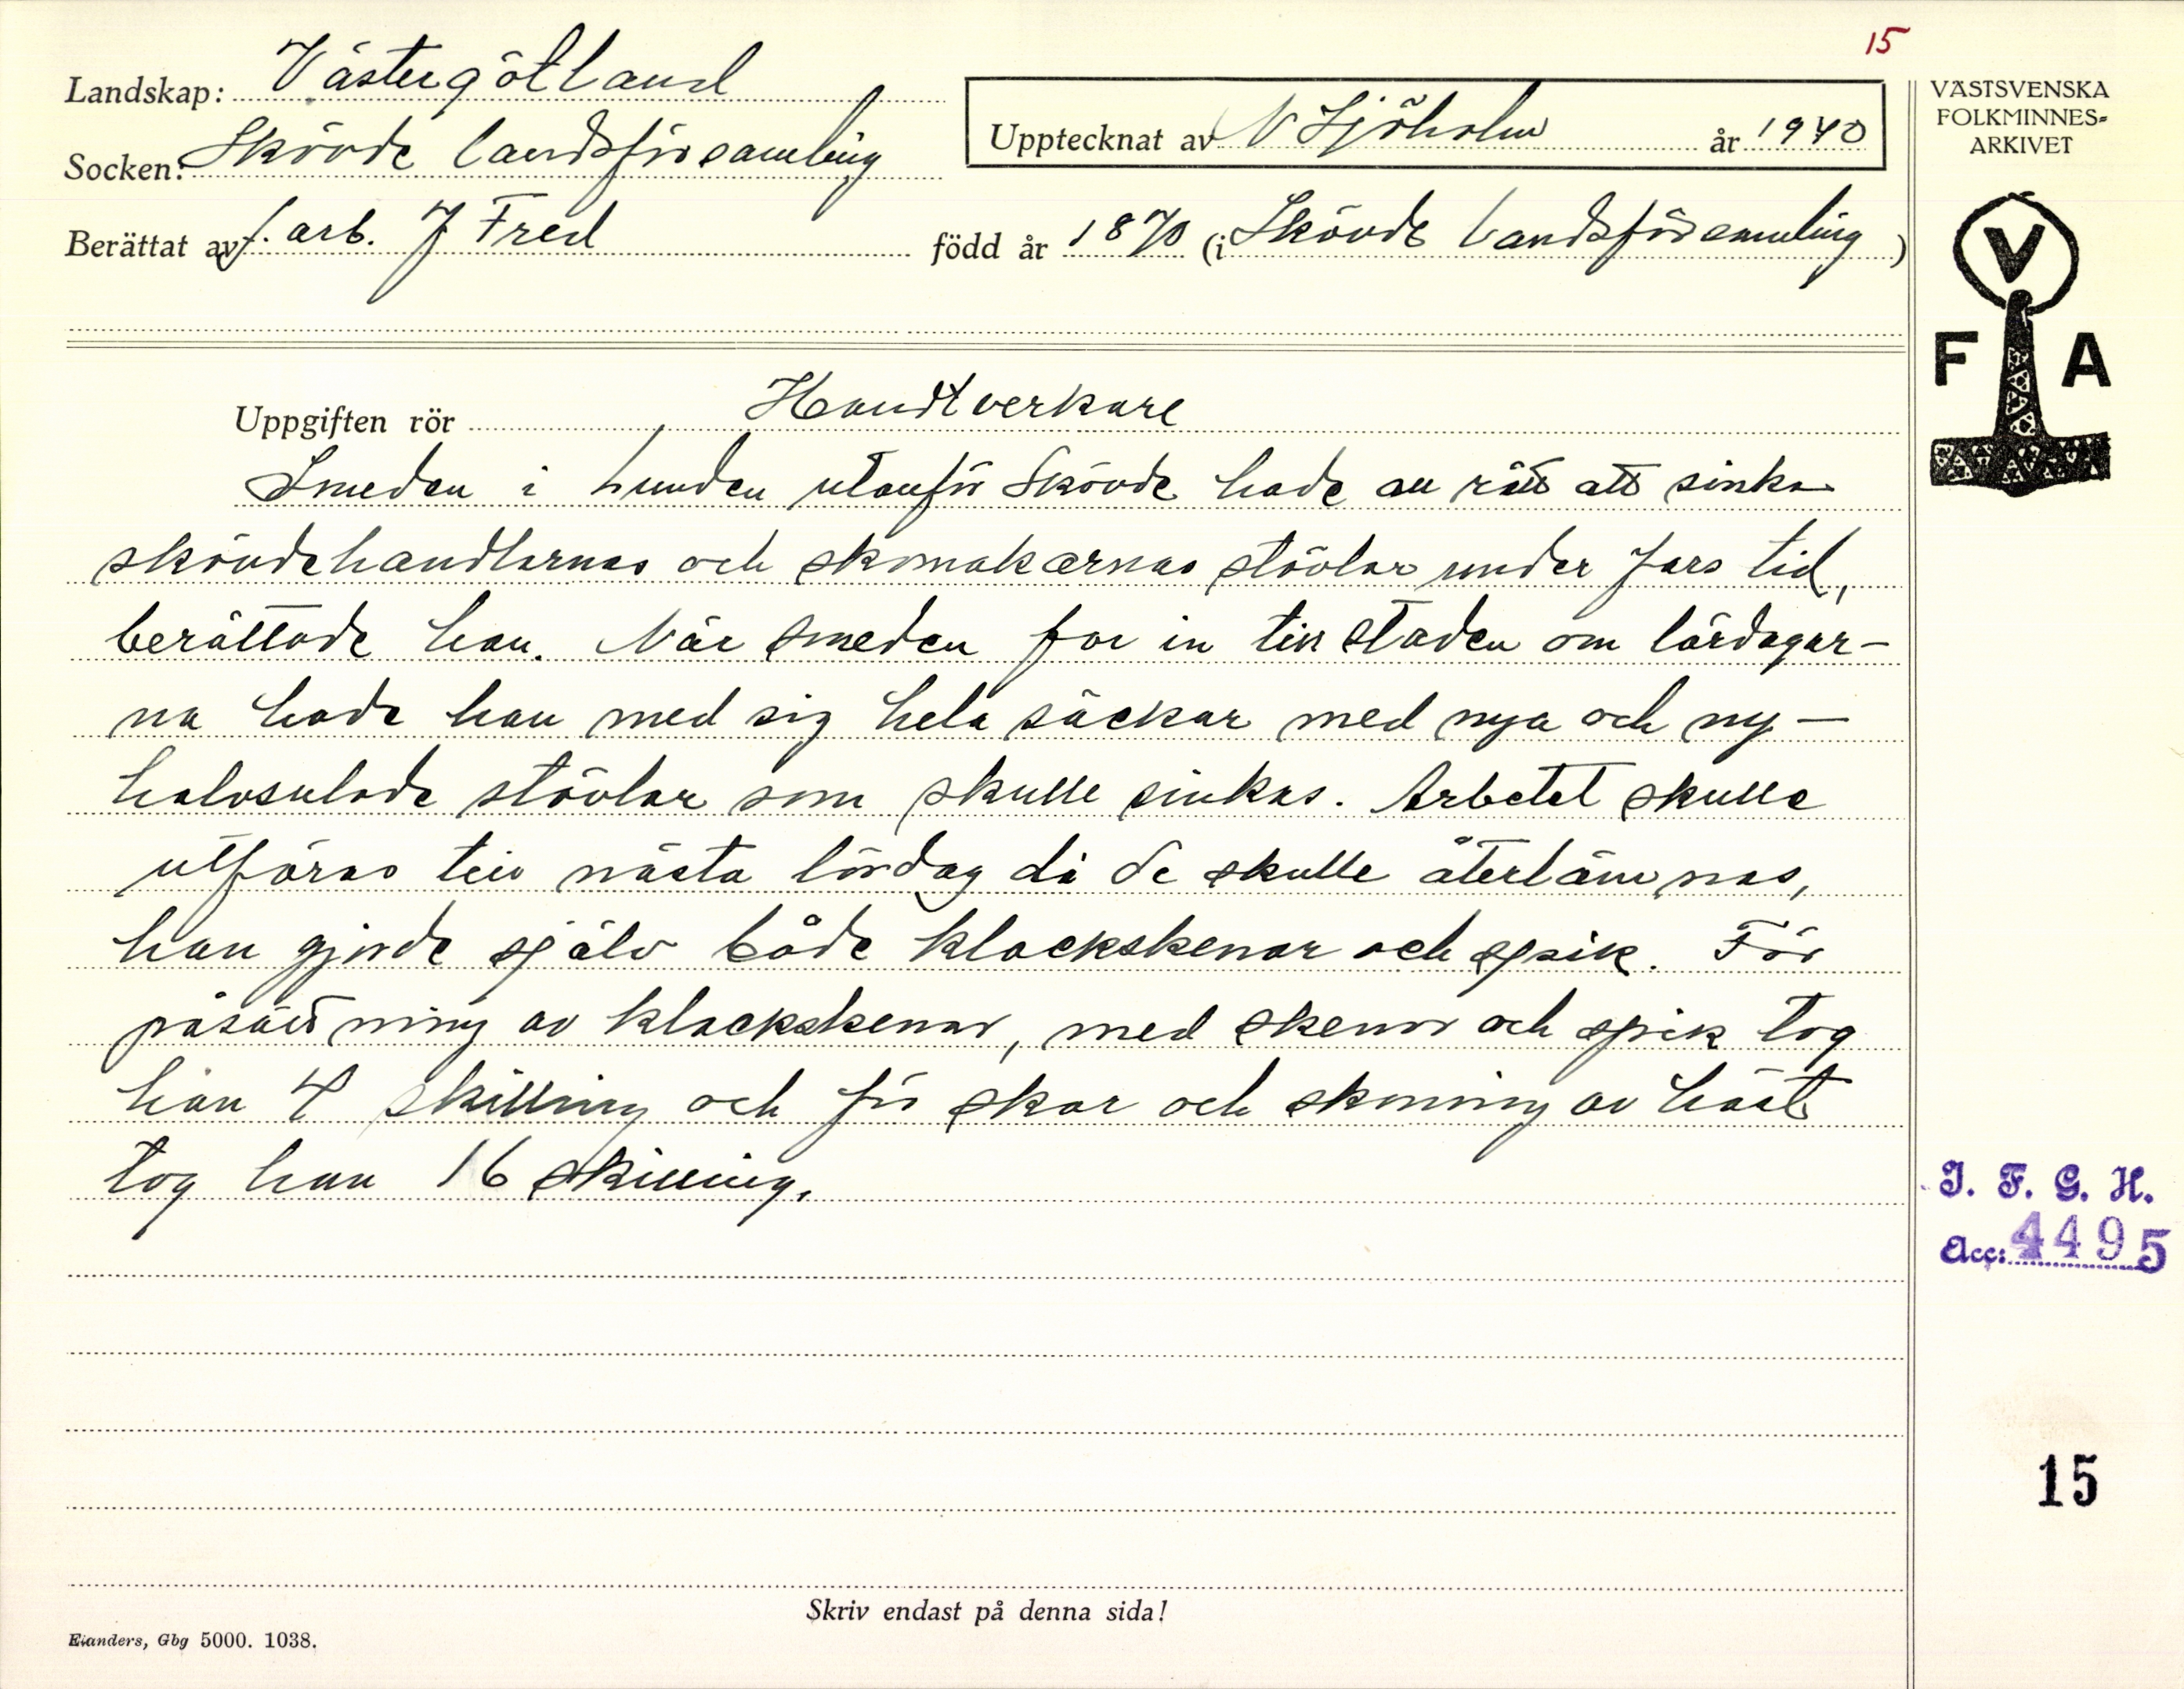 15
Landskap: Västergötland
Socken: Skövde landsförsamling
Upptecknat av N Sjöholm år 1940
Berättat av f. arb. J Fred född år 1870 (i Skövde landsförsamling)
VÄSTSVENSKA
FOLKMINNES-
ARKIVET
V
F A
Uppgiften rör Handtverkare
Smeden i Lunden utanför Skövde hade en rätt att sinka
skövdehandlarnas och skomakarnas stövlar under Jars tid,
berättade han. När smeden for in till staden om lördagar-
na hade han med sig hela säckar med nya och ny-
halvsulade stövlar som skulle sinkas. Arbetet skulle
utföras till nästa lördag då de skulle återlämnas,
han gjorde själv både klackskenor och spik. För
påsättning av klackskenor, med skenor och spik tog
han 4 skilling och för skor och skoning av häst
tog han 16 skilling.
I. F. G. H.
Acc: 4495
15
Skriv endast på denna sida!
Elanders, Gbg 5000. 1038.